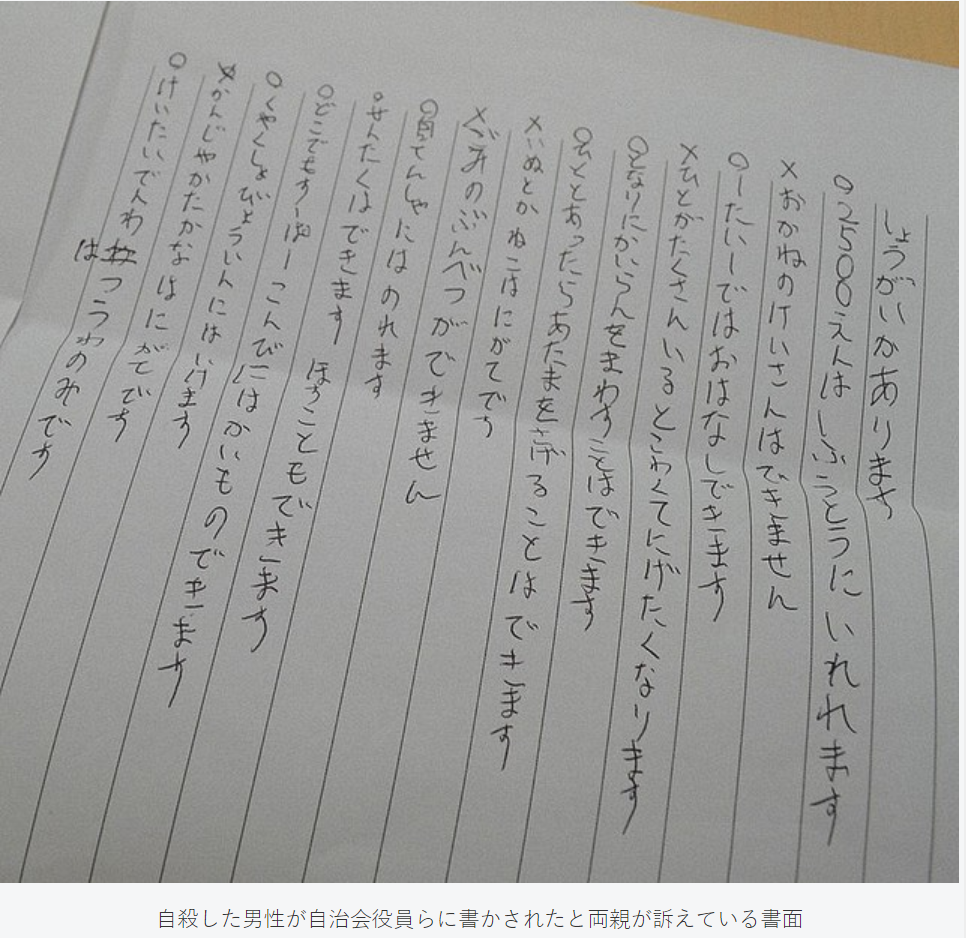 しょうがいがあります
○2500えんはしふうとうにいれれます
×おかねのけいさんはできません
○1たい1ではおはなしできます
×ひとがたくさんいるとこわくてにげたくなります
○となりにかいらんをまわすことはできます
○ひととあったらあたまをさげることはできます
×いぬとかねこはにがてです
×ごみのぶんべつができません
○自てんしゃにはのれます
○せんたくはできます ほすこともできます
○どこでもすーぱーこんびにはかいものできます
○くやくしょびょういんにはいけます
×かんじやかたかなはにがてです
○けいたいでんわ
はつうわのみです
自殺した男性が自治会役員らに書かされたと両親が訴えている書面